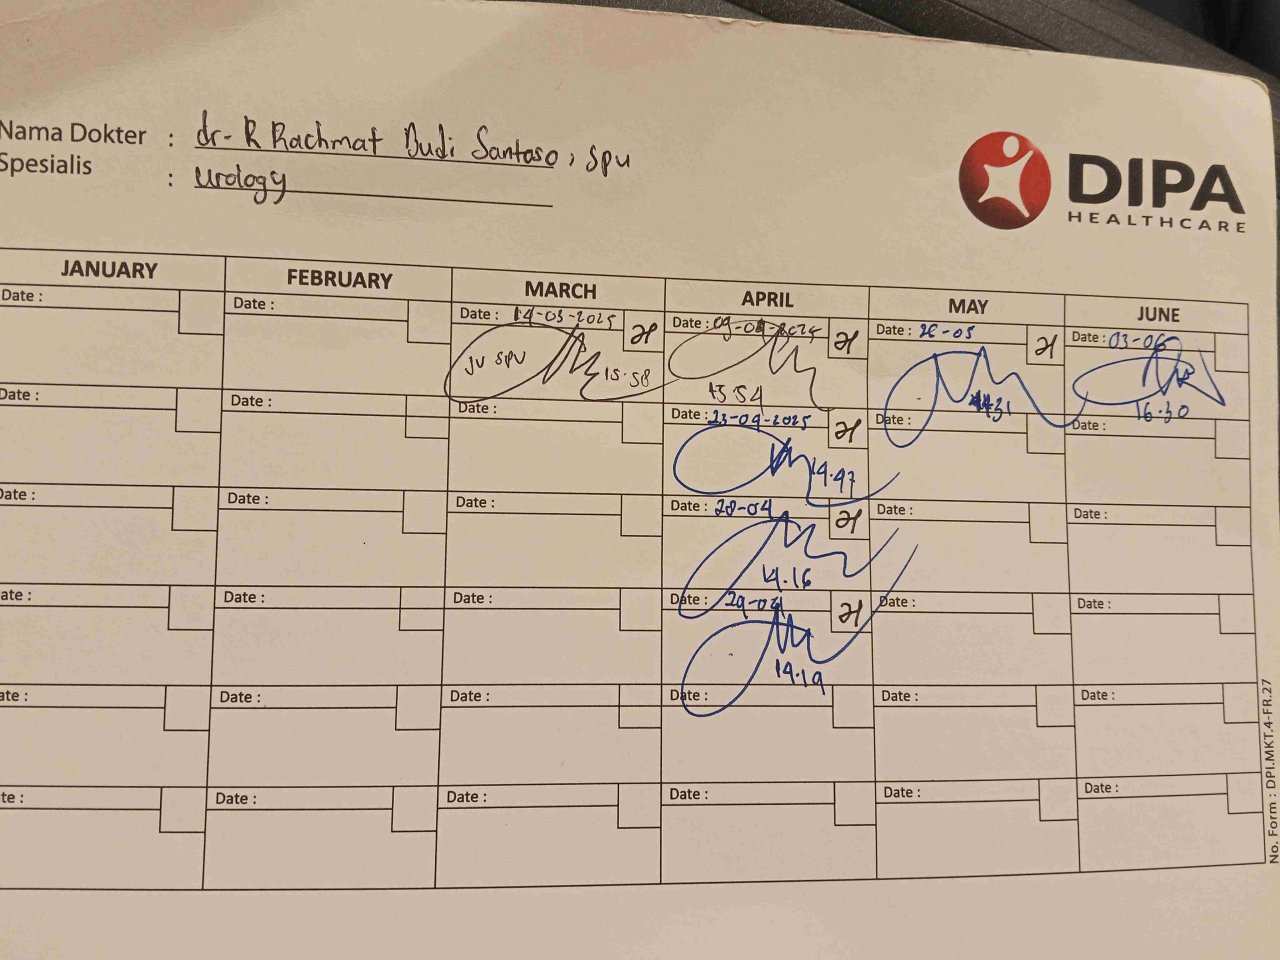 Nama Dokter : dr- R Rachmat Budi Santoso, SpU
Spesialis : Urology
DIPA
HEALTHCARE
JANUARY FEBRUARY MARCH APRIL MAY JUNE
Date : Date : Date : 14-03-2025 Date : 09-04-2025 Date : 26-05 Date : 03-06
JV SPU 15.58 15 54 31 16.30
Date : Date : Date : Date : 23-04-2025 Date : Date :
14.47
Date : Date : Date : Date : 28-04 Date : Date :
14.16
ate : Date : Date : Date : 29-04 Date : Date :
14.19
ate : Date : Date : Date : Date : Date :
te : Date : Date : Date : Date : Date :
No. Form : DPI.MKT.4-FR.27